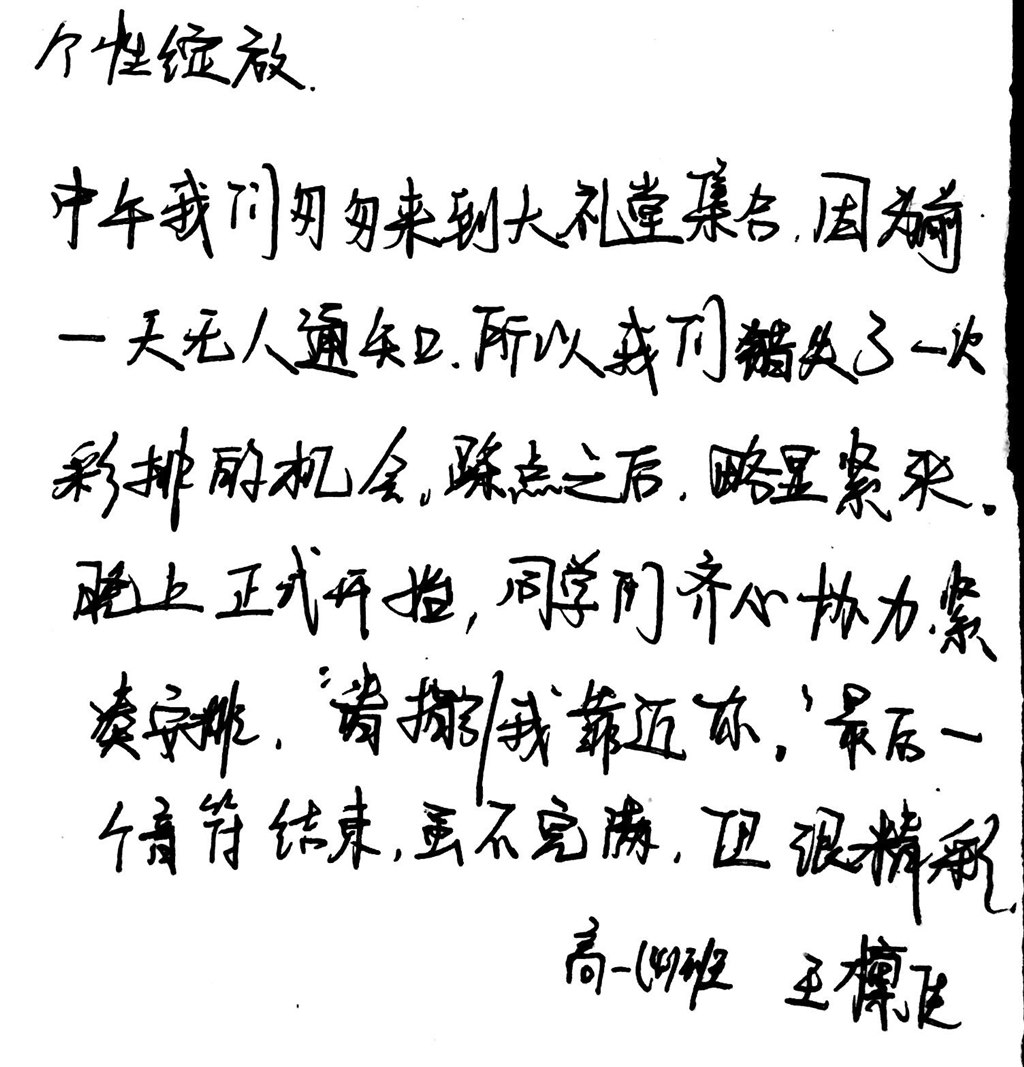 个性绽放.
中午我们匆匆来到大礼堂集合,因为前
一天无人通知,所以我们错失了一次
彩排的机会。踩点之后,略显紧张。
晚上正式开始,同学们齐心协力,紧
凑安排,“请指引我靠近你。”最后一
个音符结束,虽不完满,但很精彩.
高一(4)班 王